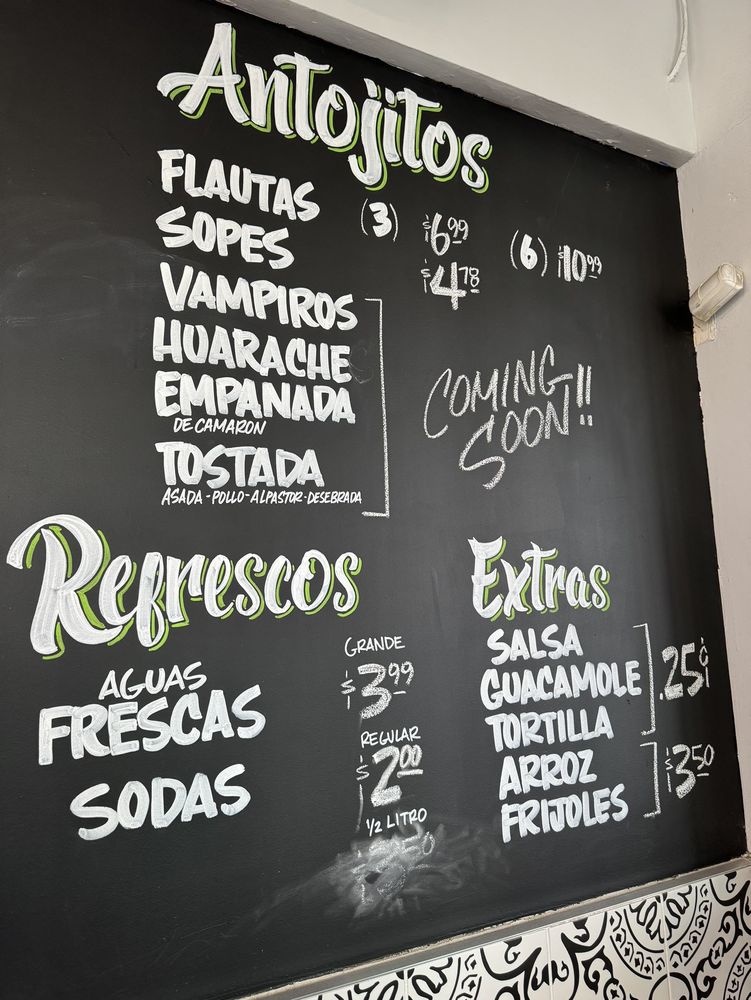 Antojitos
FLAUTAS (3) $6.99 (6) $10.99
SOPES $4.78
VAMPIROS
HUARACHE
EMPANADA
DE CAMARON
COMING
SOON!!
TOSTADA
ASADA - POLLO - AL PASTOR - DESEBRADA
Refrescos
GRANDE
AGUAS
FRESCAS $3.99
REGULAR
SODAS $2.00
1/2 LITRO
Extras
SALSA
GUACAMOLE .25¢
TORTILLA
ARROZ
FRIJOLES $3.50